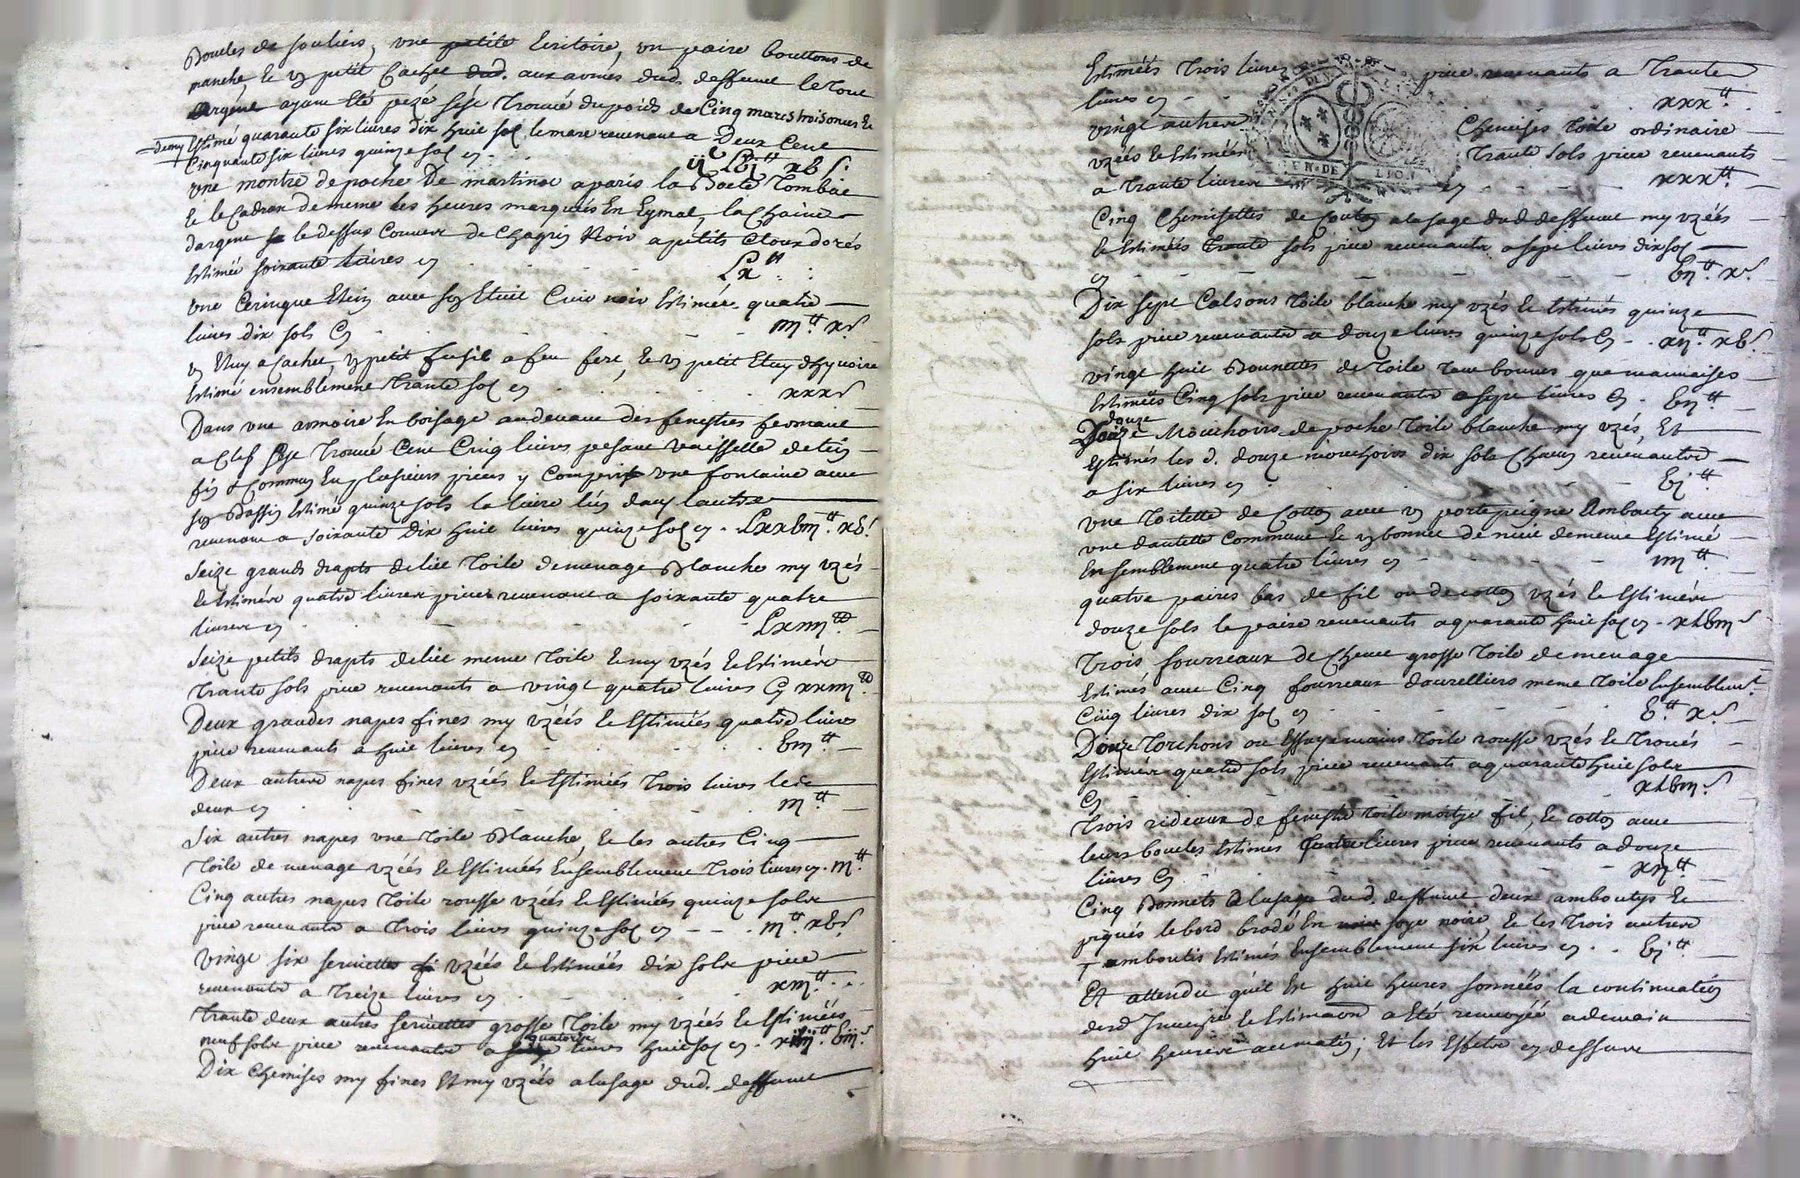 Boucles de souliers, une petite Ecritoire, un paire bouttons de
manche Et un petit Cachet dud. aux armes dud. deffunt le tout
argent ayant Eté pezé sest trouvé du poids de Cinq marcs trois onces Et
demy Estimé quarante six livres dix huit sol le marc revenant a Deux Cent
Cinquante six livres quinze sol cy - ijc Lvj tt xv s.
une montre de poche De martinot a paris la Boete Tombac
Et le Cadran de meme les heures marquées En Eymal, la Chaine
dargent le dessus Couvert de Chagrin Noir a petits Cloux dorés
Estimée soixante livres cy Lx tt
une Ceringue Etein avec son Etuit Cuir noir Estimée quatre
livres dix sols Cy iiij tt x s
un Etuy a Cachet, un petit fusil a feu fert, Et un petit Etuy dhyvoire
Estimé ensemblement trante sol cy xxx s
Dans une armoire En boisage au devant des fenestres fermant
a Clef sest trouvé Cent Cinq livres pesant vaisselle detein
fin & Commun En plusieurs pieces y Compris une fontaine avec
son Bassin Estimé quinze sols la livre lun dans lautre
revenant a soixante Dix huit livres quinze sol cy - Lxxviij tt xv s
Seize grands drapts de lict Toile de menage Blanche my uzés
Et Estimés quatre livres piece revenant a soixante quatre
livres cy Lxiiij tt
Seize petits drapts de lict meme Toile Et my uzés Et Estimés
trante sols piece revenants a vingt quatre livres Cy xxiiij tt
Deux grandes napes fines my uzées Et Estimées quatre livres
piece revenants a huit livres cy viij tt
Deux autres napes fines uzées Et Estimées trois livres les
deux cy iij tt
Six autres napes une toile Blanche, Et les autres Cinq
Toile de menage uzées Et Estimées Ensemblement trois livres cy . iij tt
Cinq autres napes toile rousse uzées Et Estimées quinze sols
piece revenants a trois livres quinze sol cy - - . iij tt xv s
vingt six serviettes uzées Et Estimées dix sols piece
revenants a treize livres cy xiij tt
trante deux autres serviettes grosse toile my uzées Et Estimées
neuf sols piece revenants a quatorze livres huit sol cy . xiiij tt viij s
Dix Chemises my fines Et my uzées a lusage dud. deffunt
Estimées trois livres piece revenants a trante
livres cy xxx tt
vingt autres Chemises toile ordinaire
uzées Et Estimées trante sols piece revenants
a trante livres cy xxx tt
GEN. DE LYON
Cinq Chemisettes de Coutton a lusage dud deffunt my uzées
Et Estimées trante sols piece revenants a sept livres dix sol
cy vij tt x s
Dix sept Calsons toile blanche my uzés Et Estimés quinze
sols piece revenants a douze livres quinze sols Cy - . xij tt xv s
vingt huit Bonnettes de toile tant bonnes que mauvaises
Estimées Cinq sols piece revenants a sept livres cy . vij tt
douze Mouchoirs de poche toile blanche my uzés, Et
Estimés les d. douze mouchoirs dix sols Chacun revenants
a six livres cy vj tt
une Toilette de Cotton avec un porte peigne Ambouty avec
une dantelle Commune Et un bonnet de nuit de meme Estimé
Ensemblement quatre livres cy iiij tt
quatre paires bas de fil ou de cotton uzés Et Estimés
douze sols le paire revenants a quarante huit sol cy - xLviij s
trois fourreaux de Chevet grosse toile de menage
Estimés avec Cinq fourreaux dourelliers meme toile Ensemblemt
Cinq livres dix sol cy v tt x s
Douze torchons ou Essuyemains toile rousse uzés Et troués
Estimés quatre sols piece revenants a quarante huit sols
Cy xLviij s
trois rideaux de fenestre toile moitye fil, Et cotton avec
leurs boucles Estimés quatre livres piece revenants a douze
livres Cy xij tt
Cinq Bonnets a lusage dud. deffunt, deux amboutys Et
piqués le bord brodé En soye noire, Et les trois autres
amboutis Estimés Ensemblement six livres cy . . vj tt
Et attendu qu'il Est huit heures sonnées la continuation
dud Inventre Et Estimaon a Eté renvoyée a demain
huit heures du matin; Et les Effets cy dessus